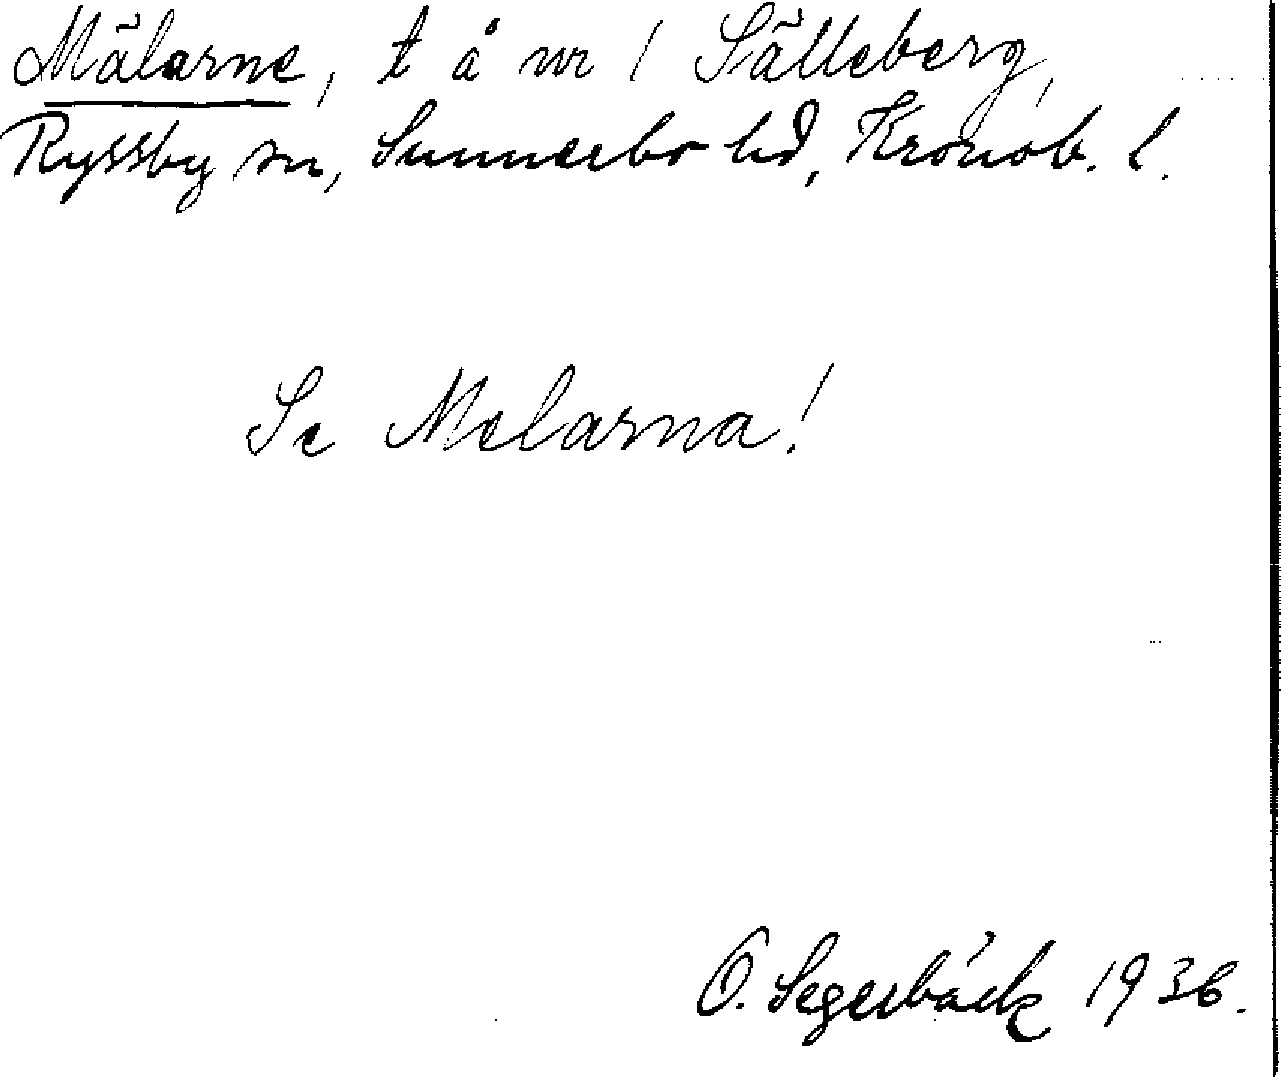 Mälarne, t å nr 1 Sälleberg,
Ryssby sn, Sunnerbo hd, Kronob. l.
Se Melarna!
O. Segerbäck 1936.